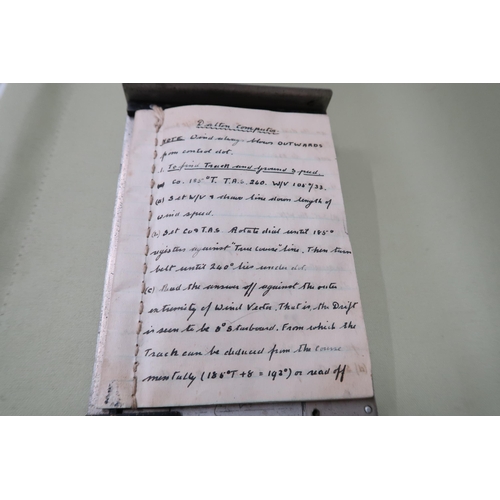 Dalton Computer.
NOTE Wind always blows OUTWARDS
from central dot.
1. To find Track and Ground Speed.
Co. 185°T. T.A.S. 240. W/V 105°/33.
(a) Set W/V & draw line down length of
wind speed.
(b) Set Co & T.A.S. Rotate dial until 185°
registers against "True Course" line. Then turn
belt until 240° lies under dot.
(c) Read the answer off against the outer
extremity of Wind Vector. That is, the Drift
is seen to be 8° Starboard. From which the
Track can be deduced from the course
mentally (185°T + 8 = 193°) or read off